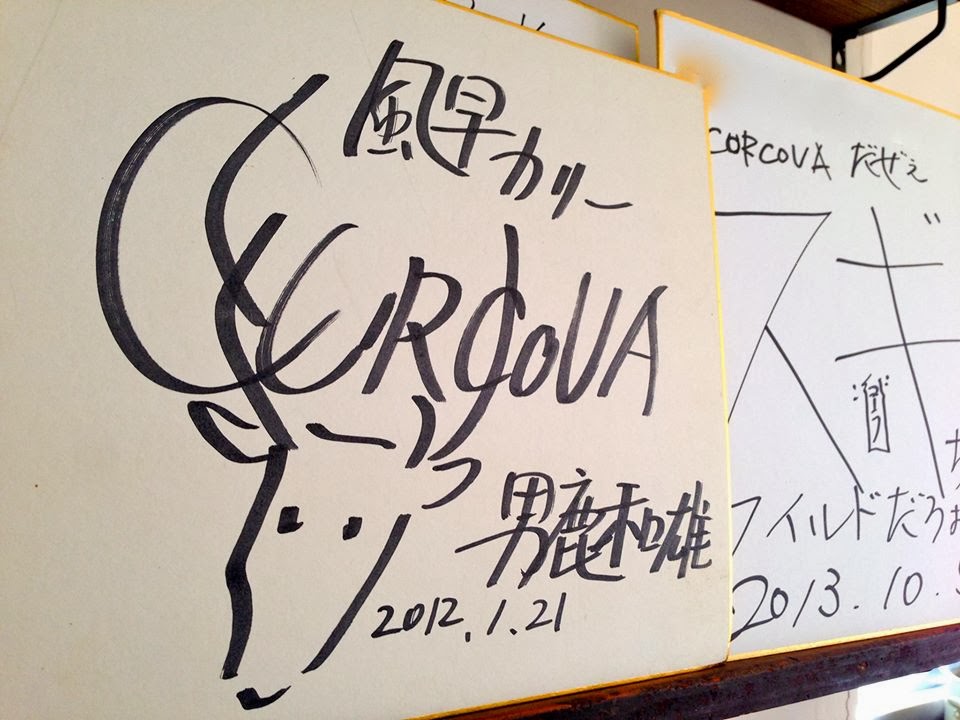 風早
カリー
CORCOVA
男鹿和雄
2012.1.21
CORCOVA だぜぇ
スギ
フイルドだろぉ
2013.10.